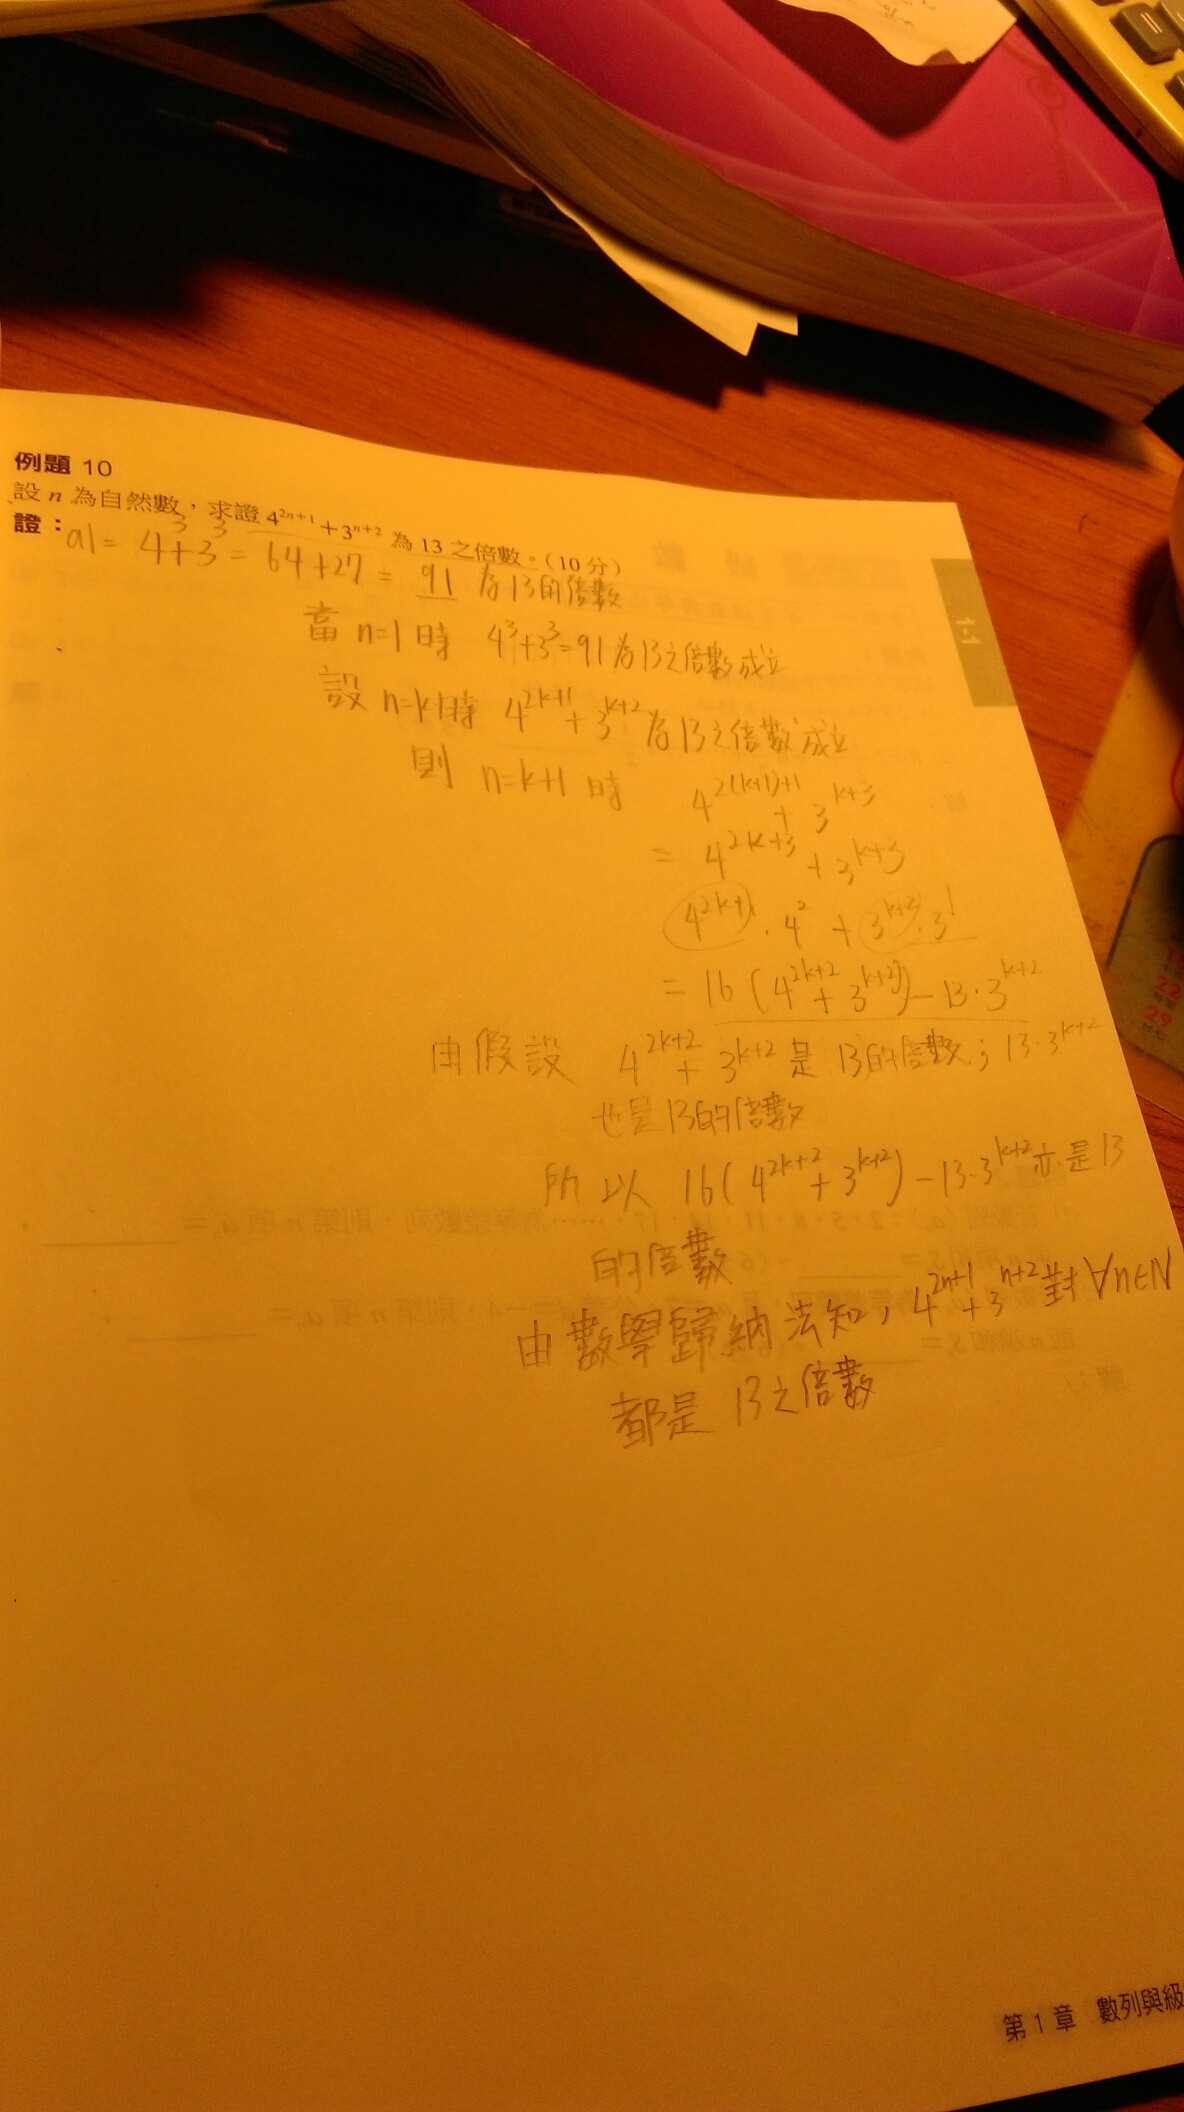 例題 10
設 n 為自然數，求證 4^{2n+1} + 3^{n+2} 為 13 之倍數。(10 分)
證：
a1 = 4^3 + 3^3 = 64 + 27 = 91 為13的倍數
當 n=1 時 4^3+3^3=91 為13之倍數成立
設 n=k時 4^{2k+1} + 3^{k+2} 為13之倍數成立
則 n=k+1 時 4^{2(k+1)+1} + 3^{k+3}
= 4^{2k+3} + 3^{k+3}
4^{2k+1} · 4^2 + 3^{k+2} · 3^1
= 16 (4^{2k+2} + 3^{k+2}) - 13 · 3^{k+2}
由假設 4^{2k+2} + 3^{k+2} 是 13的倍數; 13·3^{k+2}
也是13的倍數
所以 16(4^{2k+2} + 3^{k+2}) - 13·3^{k+2} 亦是13
的倍數
由數學歸納法知, 4^{2n+1} + 3^{n+2} 對 ∀n∈N
都是 13之倍數
1-1
15
22
29
第 1 章 數列與級